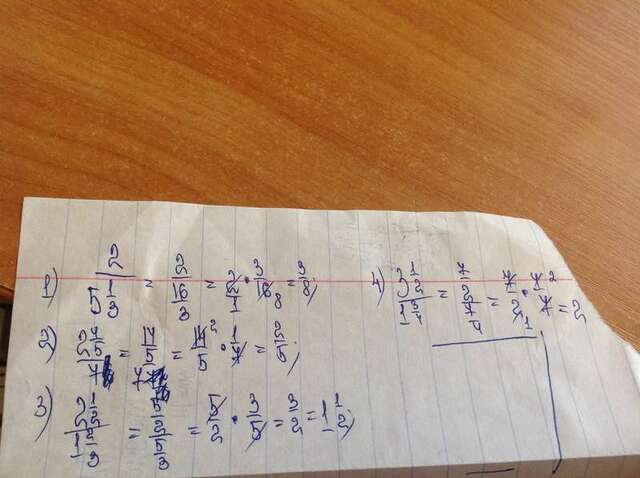 1) 2/(5 1/3) = 2/(16/3) = 2/1 · 3/16 = 3/8;
2) (2 4/5)/7 = (14/5)/7 = 14/5 · 1/7 = 2/5;
3) (2 1/2)/(1 2/3) = (5/2)/(5/3) = 5/2 · 3/5 = 3/2 = 1 1/2;
4) (3 1/2)/(1 3/4) = (7/2)/(7/4) = 7/2 · 4/7 = 2